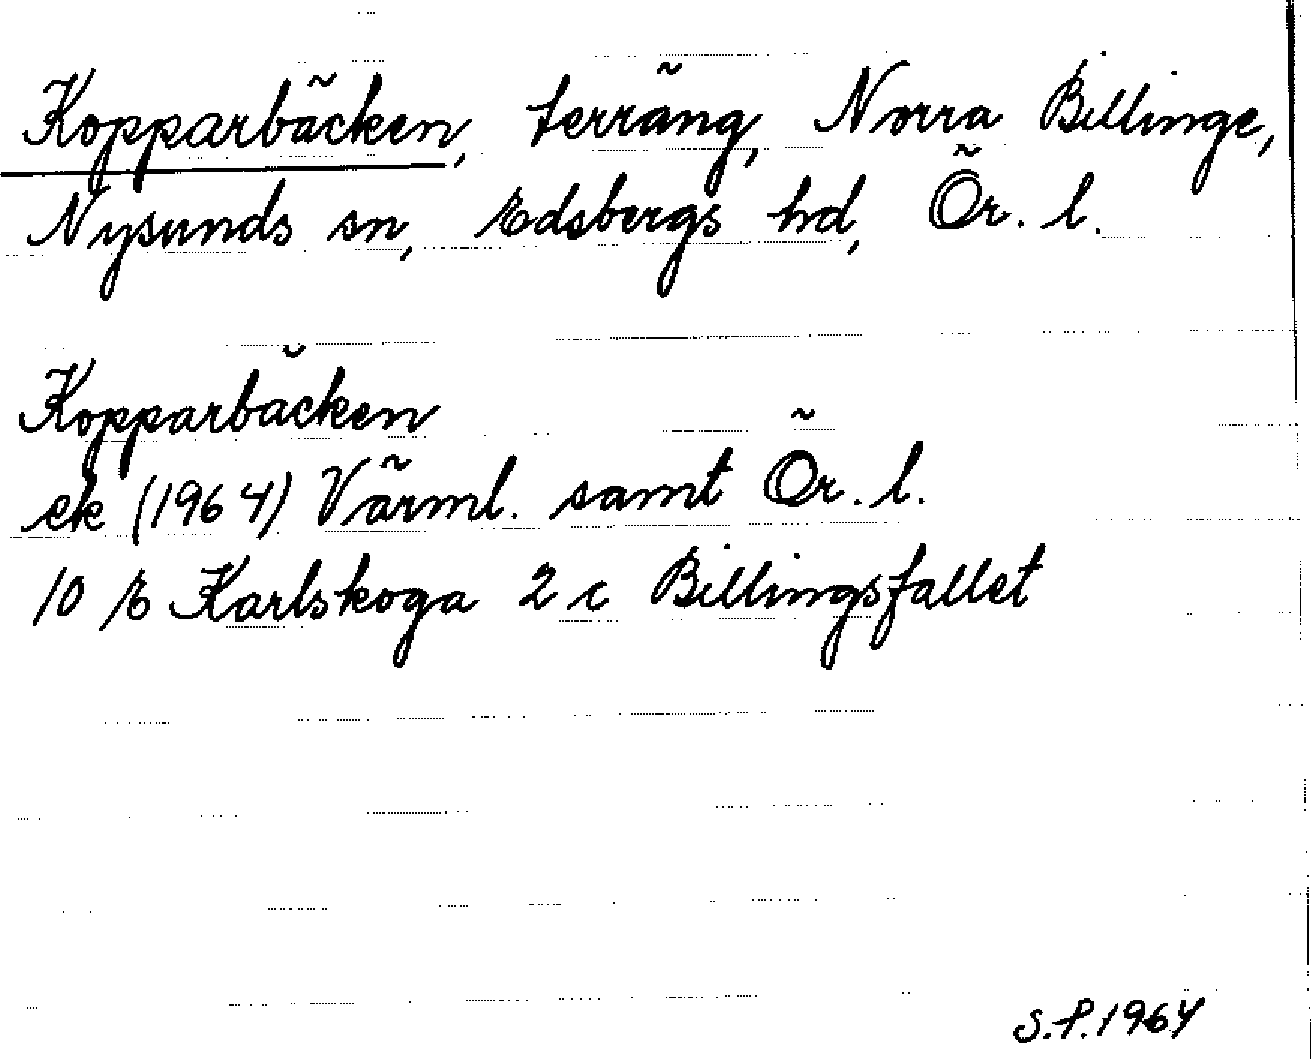 Kopparbäcken, terräng, Norra Billinge,
Nysunds sn, Edsbergs hd, Ör. l.
Kopparbäcken
ek (1964) Värml. samt Ör. l.
10 E Karlskoga 2 c Billingsfallet
S.P. 1964